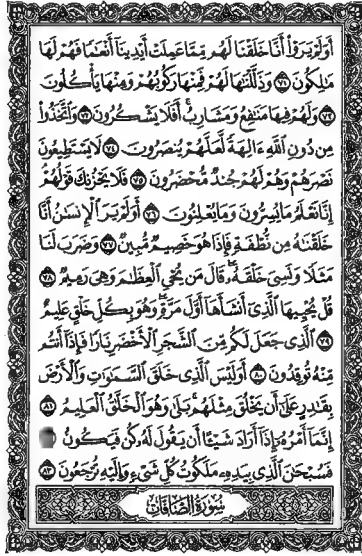 أَوَلَمْ يَرَوْا۟ أَنَّا خَلَقْنَا لَهُم مِّمَّا عَمِلَتْ أَيْدِينَآ أَنْعَٰمًا فَهُمْ لَهَا
مَٰلِكُونَ ٧١ وَذَلَّلْنَٰهَا لَهُمْ فَمِنْهَا رَكُوبُهُمْ وَمِنْهَا يَأْكُلُونَ
٧٢ وَلَهُمْ فِيهَا مَنَٰفِعُ وَمَشَارِبُ أَفَلَا يَشْكُرُونَ ٧٣ وَٱتَّخَذُوا۟
مِن دُونِ ٱللَّهِ ءَالِهَةً لَّعَلَّهُمْ يُنصَرُونَ ٧٤ لَا يَسْتَطِيعُونَ
نَصْرَهُمْ وَهُمْ لَهُمْ جُندٌ مُّحْضَرُونَ ٧٥ فَلَا يَحْزُنكَ قَوْلُهُمْ
إِنَّا نَعْلَمُ مَا يُسِرُّونَ وَمَا يُعْلِنُونَ ٧٦ أَوَلَمْ يَرَ ٱلْإِنسَٰنُ أَنَّا
خَلَقْنَٰهُ مِن نُّطْفَةٍ فَإِذَا هُوَ خَصِيمٌ مُّبِينٌ ٧٧ وَضَرَبَ لَنَا
مَثَلًا وَنَسِىَ خَلْقَهُۥ قَالَ مَن يُحْىِ ٱلْعِظَٰمَ وَهِىَ رَمِيمٌ ٧٨
قُلْ يُحْيِيهَا ٱلَّذِىٓ أَنشَأَهَآ أَوَّلَ مَرَّةٍ وَهُوَ بِكُلِّ خَلْقٍ عَلِيمٌ
٧٩ ٱلَّذِى جَعَلَ لَكُم مِّنَ ٱلشَّجَرِ ٱلْأَخْضَرِ نَارًا فَإِذَآ أَنتُم
مِّنْهُ تُوقِدُونَ ٨٠ أَوَلَيْسَ ٱلَّذِى خَلَقَ ٱلسَّمَٰوَٰتِ وَٱلْأَرْضَ
بِقَٰدِرٍ عَلَىٰٓ أَن يَخْلُقَ مِثْلَهُم بَلَىٰ وَهُوَ ٱلْخَلَّٰقُ ٱلْعَلِيمُ ٨١
إِنَّمَآ أَمْرُهُۥٓ إِذَآ أَرَادَ شَيْـًٔا أَن يَقُولَ لَهُۥ كُن فَيَكُونُ
فَسُبْحَٰنَ ٱلَّذِى بِيَدِهِۦ مَلَكُوتُ كُلِّ شَىْءٍ وَإِلَيْهِ تُرْجَعُونَ ٨٣
سُورَةُ الصَّافَّاتِ